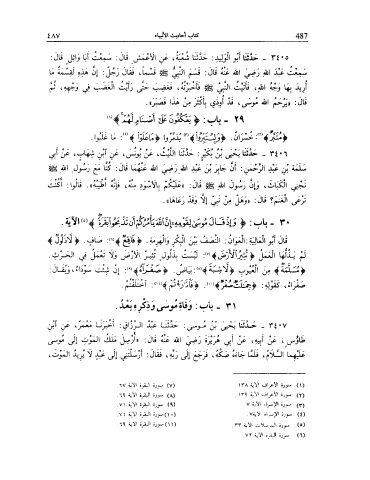 487
كتاب أحاديث الأنبياء
٤٨٧
٣٤٠٥ - حَدَّثَنَا أَبُو الْوَلِيدِ: حَدَّثَنَا شُعْبَةُ، عَنِ الأَعْمَشِ قَالَ: سَمِعْتُ أَبَا وَائِلٍ قَالَ:
سَمِعْتُ عَبْدَ اللهِ رَضِيَ اللهُ عَنْهُ قَالَ: قَسَمَ النَّبِيُّ ﷺ قَسْماً، فَقَالَ رَجُلٌ: إِنَّ هَذِهِ لَقِسْمَةٌ مَا
أُرِيدَ بِهَا وَجْهُ اللهِ، فَأَتَيْتُ النَّبِيَّ ﷺ فَأَخْبَرْتُهُ، فَغَضِبَ حَتَّى رَأَيْتُ الْغَضَبَ فِي وَجْهِهِ، ثُمَّ
قَالَ: «يَرْحَمُ اللهُ مُوسَى، قَدْ أُوذِيَ بِأَكْثَرَ مِنْ هَذَا فَصَبَرَ».
٢٩ - باب: ﴿يَعْكُفُونَ عَلَى أَصْنَامٍ لَهُمْ﴾(١)
﴿مُتَبَّرٌ﴾(٢): خُسْرَانٌ. ﴿وَلِيُتَبِّرُوا﴾(٣): يُدَمِّرُوا ﴿مَا عَلَوْا﴾(٤): مَا غَلَبُوا.
٣٤٠٦ - حَدَّثَنَا يَحْيَى بْنُ بُكَيْرٍ: حَدَّثَنَا اللَّيْثُ، عَنْ يُونُسَ، عَنِ ابْنِ شِهَابٍ، عَنْ أَبِي
سَلَمَةَ بْنِ عَبْدِ الرَّحْمَنِ: أَنَّ جَابِرَ بْنَ عَبْدِ اللهِ رَضِيَ اللهُ عَنْهُمَا قَالَ: كُنَّا مَعَ رَسُولِ اللهِ ﷺ
نَجْنِي الْكَبَاثَ، وَإِنَّ رَسُولَ اللهِ ﷺ قَالَ: «عَلَيْكُمْ بِالأَسْوَدِ مِنْهُ، فَإِنَّهُ أَطْيَبُهُ». قَالُوا: أَكُنْتَ
تَرْعَى الْغَنَمَ؟ قَالَ: «وَهَلْ مِنْ نَبِيٍّ إِلَّا وَقَدْ رَعَاهَا».
٣٠ - باب: ﴿وَإِذْ قَالَ مُوسَى لِقَوْمِهِ إِنَّ اللَّهَ يَأْمُرُكُمْ أَنْ تَذْبَحُوا بَقَرَةً﴾(٥) الآية.
قَالَ أَبُو الْعَالِيَةِ: الْعَوَانُ: النَّصَفُ بَيْنَ الْبِكْرِ وَالْهَرِمَةِ. ﴿فَاقِعٌ﴾(٦): صَافٍ. ﴿لَا ذَلُولٌ﴾
لَمْ يُذِلَّهَا الْعَمَلُ ﴿تُثِيرُ الْأَرْضَ﴾(٧): لَيْسَتْ بِذَلُولٍ تُثِيرُ الأَرْضَ وَلَا تَعْمَلُ فِي الْحَرْثِ.
﴿مُسَلَّمَةٌ﴾(٨) مِنَ الْعُيُوبِ ﴿لَا شِيَةَ﴾(٩): بَيَاضٌ. ﴿صَفْرَاءُ﴾(١٠): إِنْ شِئْتَ سَوْدَاءُ، وَيُقَالُ:
صَفْرَاءُ، كَقَوْلِهِ: ﴿جِمَالَتٌ صُفْرٌ﴾ ﴿فَادَّارَأْتُمْ﴾: اخْتَلَفْتُمْ.
٣١ - باب: وَفَاةُ مُوسَى وَذِكْرِهِ بَعْدُ.
٣٤٠٧ - حَدَّثَنَا يَحْيَى بْنُ مُوسَى: حَدَّثَنَا عَبْدُ الرَّزَّاقِ: أَخْبَرَنَا مَعْمَرٌ، عَنِ ابْنِ
طَاوُسٍ، عَنْ أَبِيهِ، عَنْ أَبِي هُرَيْرَةَ رَضِيَ اللهُ عَنْهُ قَالَ: «أُرْسِلَ مَلَكُ الْمَوْتِ إِلَى مُوسَى
عَلَيْهِمَا السَّلَامُ، فَلَمَّا جَاءَهُ صَكَّهُ، فَرَجَعَ إِلَى رَبِّهِ، فَقَالَ: أَرْسَلْتَنِي إِلَى عَبْدٍ لَا يُرِيدُ الْمَوْتَ،
(١) سورة الأعراف الآية ١٣٨
(٢) سورة الأعراف الآية ١٣٩
(٣) سورة الإسراء الآية ٧
(٤) سورة الإسراء الآية ٧.
(٥) سورة المرسلات الآية ٣٣
(٦) سورة البقرة الآية ٧٢
(٧) سورة البقرة الآية ٦٧
(٨) سورة البقرة الآية ٦٩.
(٩) سورة البقرة الآية ٧١.
(١٠) سورة البقرة الآية ٧١
(١١) سورة البقرة الآية ٦٩